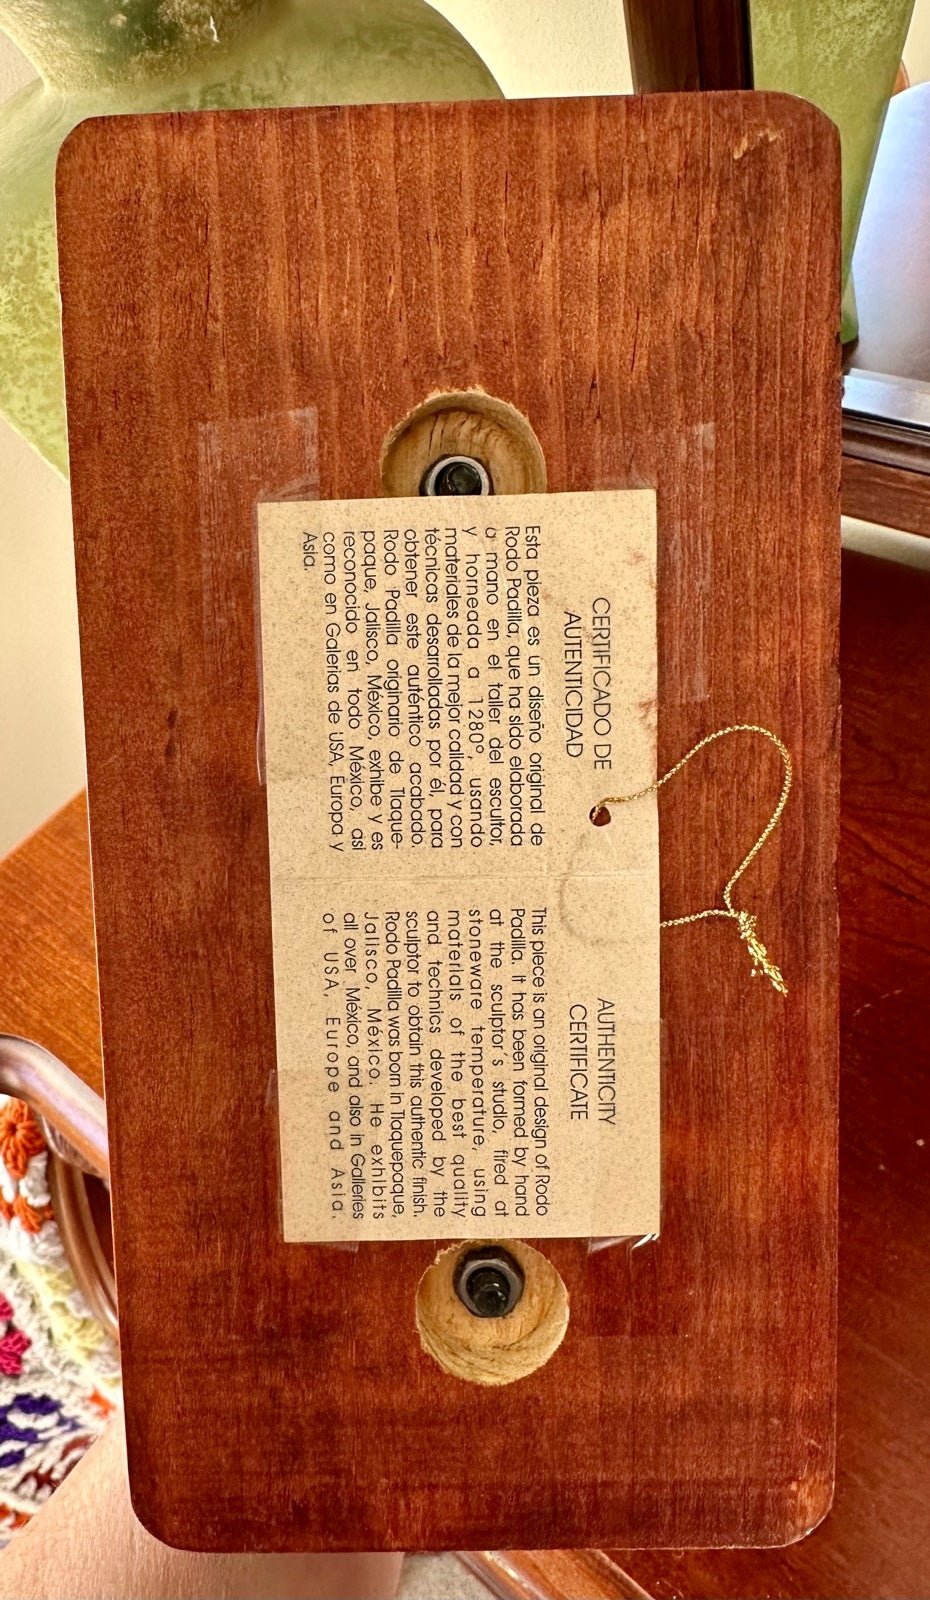 CERTIFICADO DE
AUTENTICIDAD
Esta pieza es un diseño original de
Rodo Padilla, que ha sido elaborada
a mano en el taller del escultor,
y horneada a 1280º, usando
materiales de la mejor calidad y con
técnicas desarrolladas por él, para
obtener este auténtico acabado.
Rodo Padilla originario de Tlaque-
paque, Jalisco, México, exhibe y es
reconocido en todo México, así
como en Galerías de USA, Europa y
Asia.
AUTHENTICITY
CERTIFICATE
This piece is an original design of Rodo
Padilla. It has been formed by hand
at the sculptor's studio, fired at
stoneware temperature, using
materials of the best quality
and technics developed by the
sculptor to obtain this authentic finish.
Rodo Padilla was born in Tlaquepaque,
Jalisco, México. He exhibits
all over México, and also in Galleries
of USA, Europe and Asia.